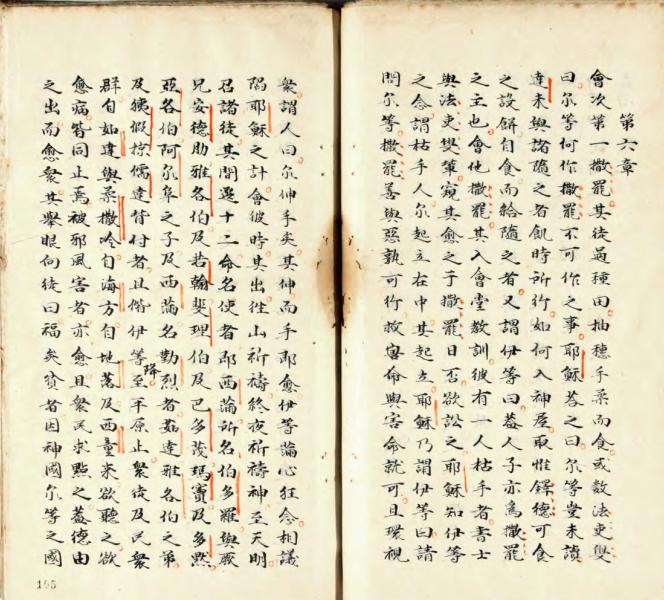 第六章
會次第一撒罷其徒過種田抽穗手柔而食或数法吏㸔
曰尔等何作撒罷不可作之事耶穌荅之曰尔等豈未讀
達未與諸隨之者飢時所行如何入神屋取惟鐸德可食
之設餅自食而給隨之者又謂伊等曰葢人子亦爲撒罷
之主也會他撒罷其入會堂教訓彼有一人枯手者書士
與法吏樊軰窺其愈之于撒罷日否欲訟之耶穌知伊等
之念謂枯手人尔起立在中其起立耶穌乃謂伊等曰請
問尔等撒罷善與惡孰可行救靈命與害命就可且環視
衆謂人曰尔伸手矣其伸而手即愈伊等論心狂念相議
陷耶穌之計會彼時其出徃山祈禱終夜祈禱神至天明
召諸徒其間選十二命名使者即西滿所名伯多羅與厥
兄安德肋雅各伯及若翰斐理伯及巴多茂瑪竇及多黙
亞各伯阿尔阜之子及西滿名勤烈者茹達雅各伯之苐
及猗假掠儒達背付者且偕伊等降至平原止衆徒及民衆
群自如達與柔撒吟自海方自地蓖及西量來欲聽之欲
愈病皆同止焉被邪風害者亦愈且衆民求㸃之葢德由
之出而愈衆其舉眼向徒曰福矣貧者因神國尔等之國
105